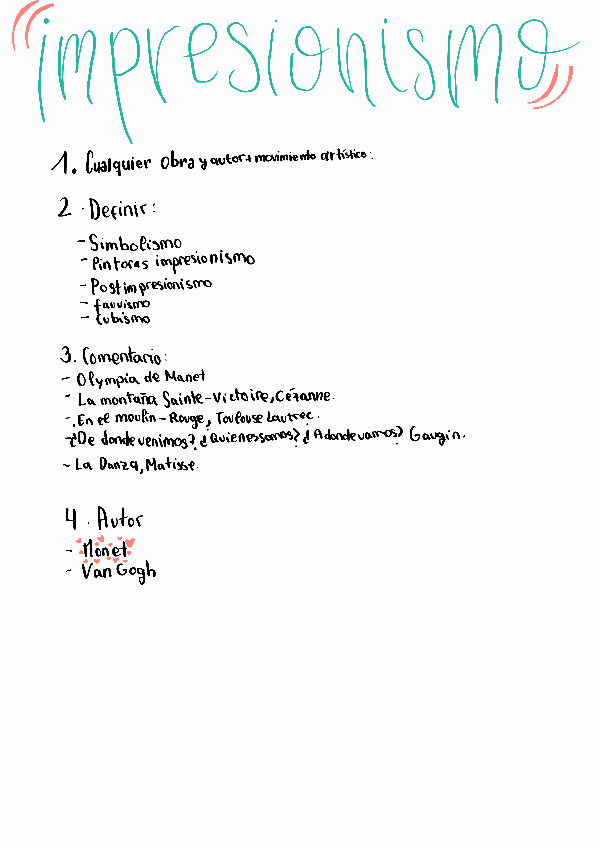 impresionismo
1. Cualquier obra y autor + movimiento artístico:
2. Definir:
- Simbolismo
- Pintoras impresionismo
- Postimpresionismo
- fauvismo
- Cubismo
3. Comentario:
- Olympia de Manet
- La montaña Sainte-Victoire, Cézanne.
- En el moulin-Rouge, Toulouse Lautrec.
- ¿De donde venimos? ¿Quienes somos? ¿A donde vamos? Gaugin.
- La Danza, Matisse.
4. Autor
- Monet
- Van Gogh